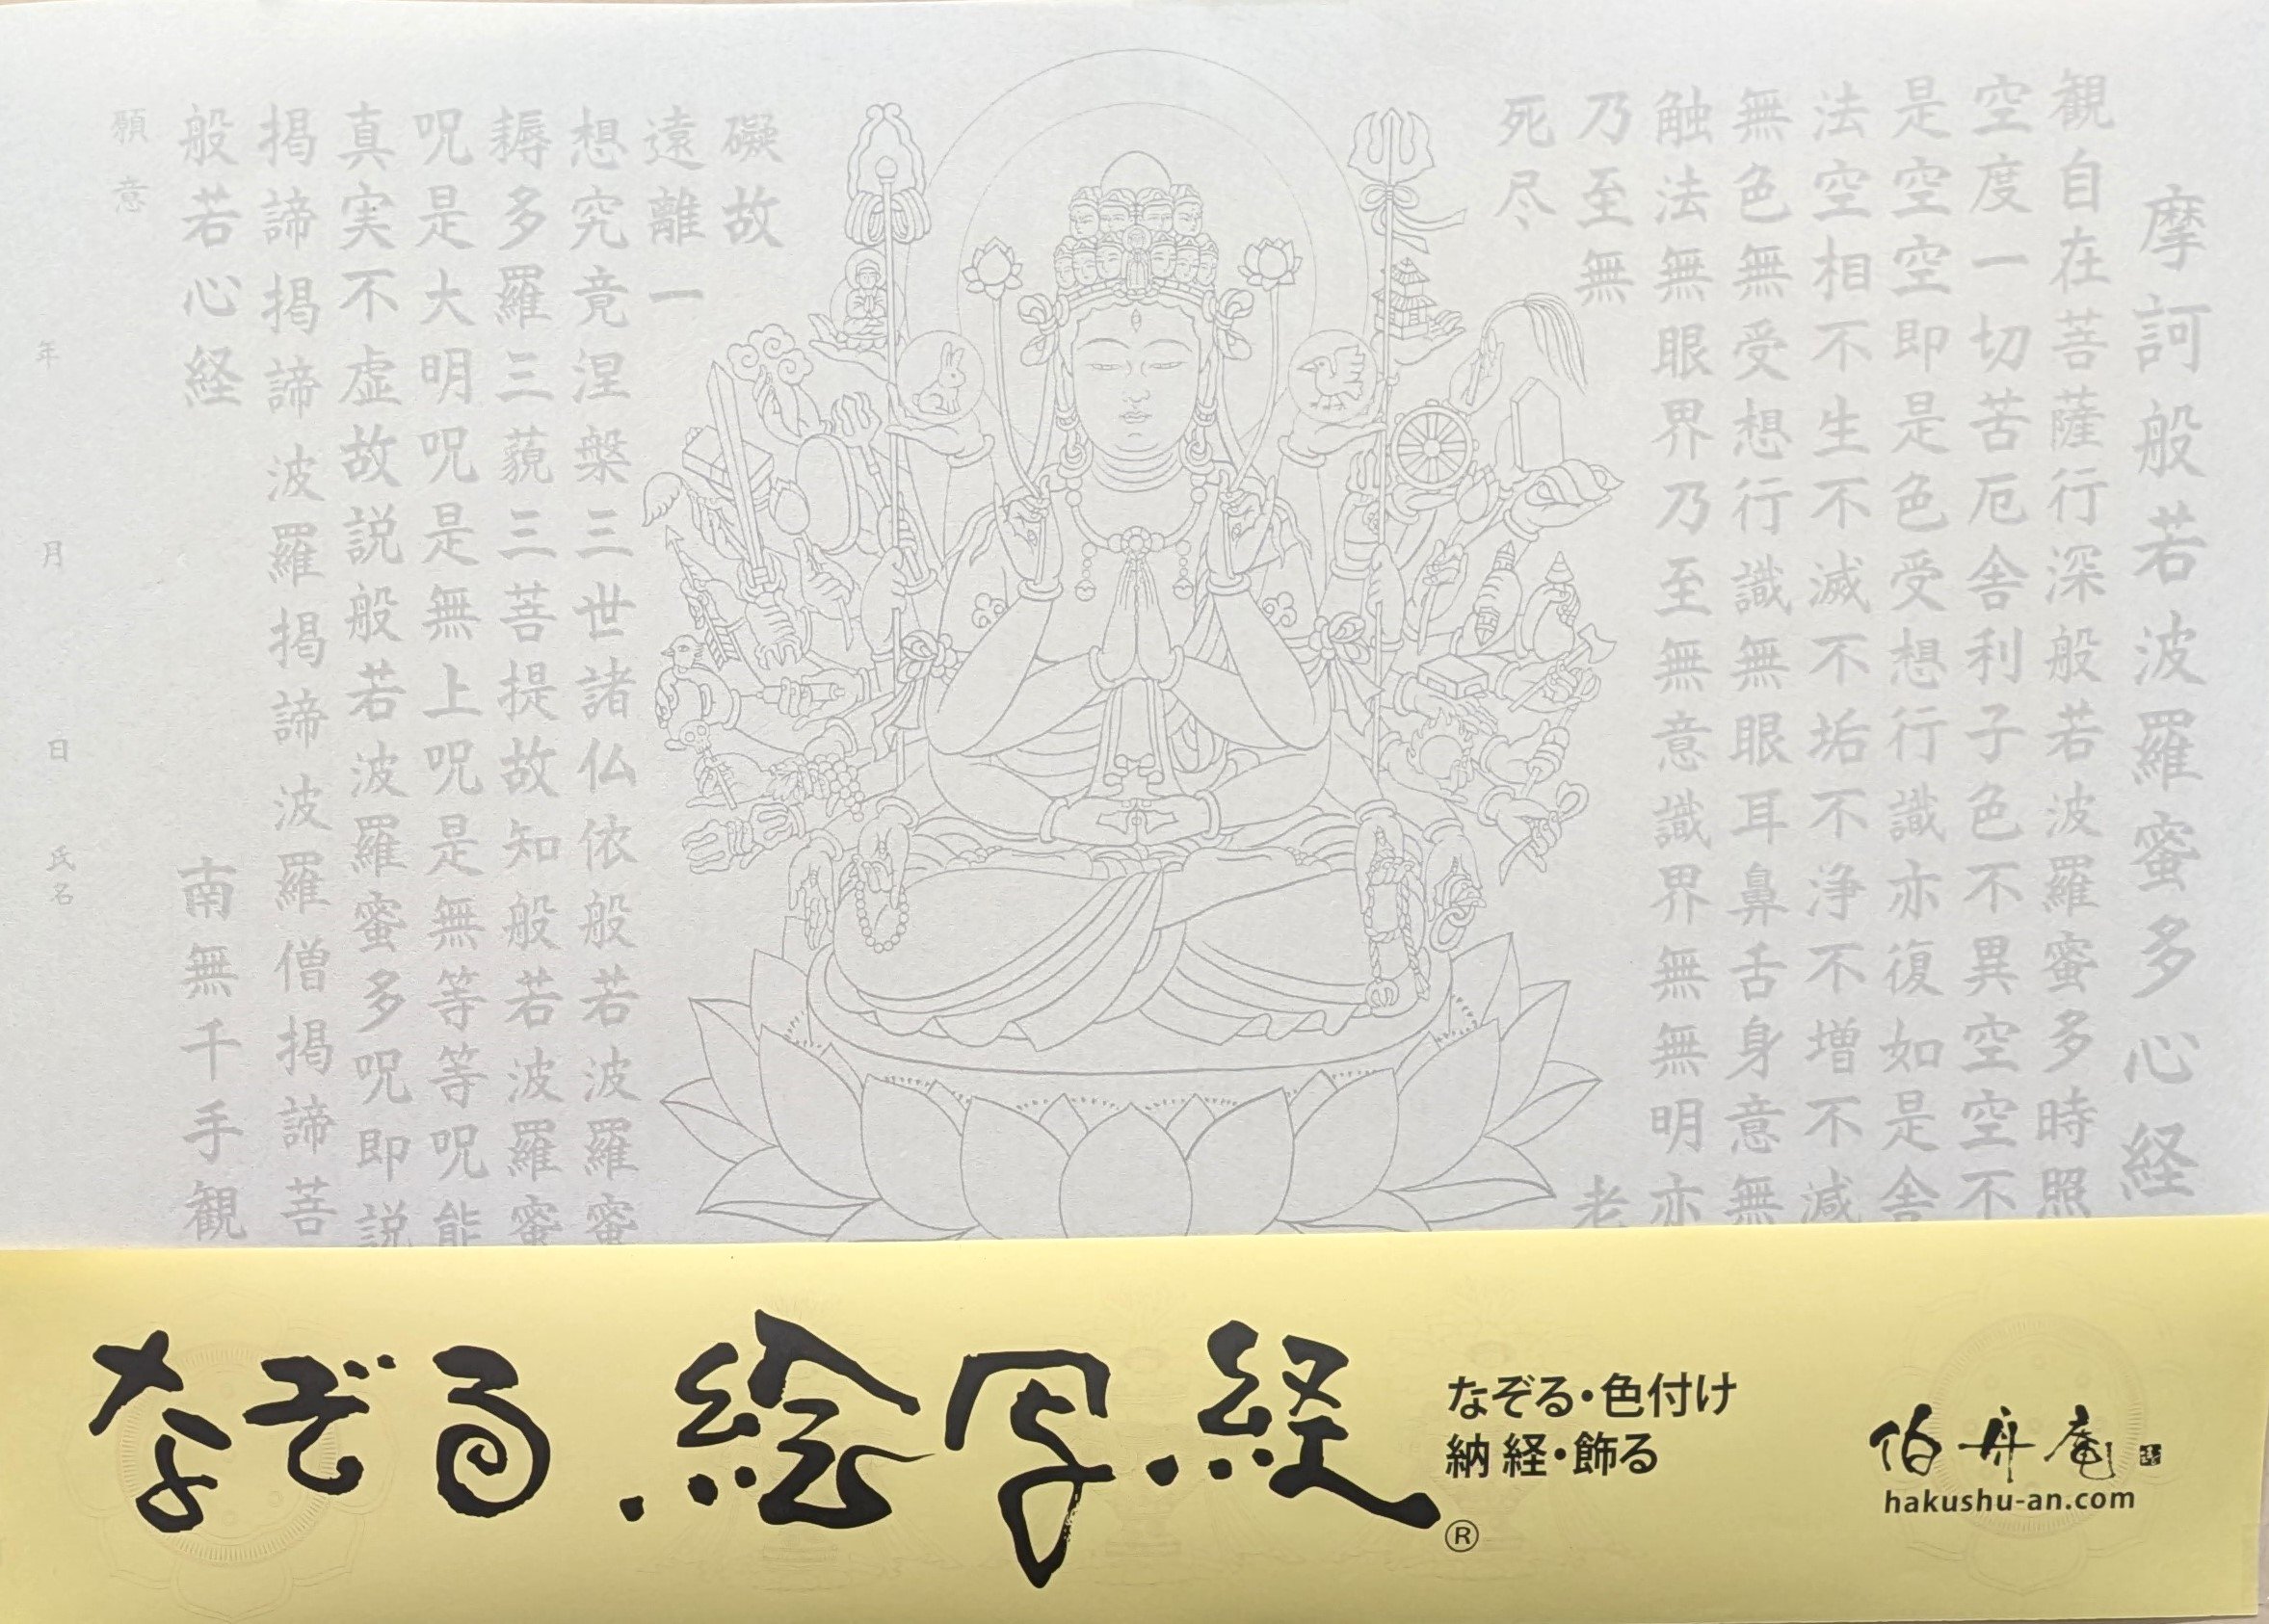 摩訶般若波羅蜜多心経
観自在菩薩行深般若波羅蜜多時照
空度一切苦厄舎利子色不異空空不
是空空即是色受想行識亦復如是舎
法空相不生不滅不垢不浄不増不減
無色無受想行識無眼耳鼻舌身意無
触法無眼界乃至無意識界無無明亦
乃至無 老
死尽
礙故
遠離一
想究竟涅槃三世諸仏依般若波羅蜜
耨多羅三藐三菩提故知般若波羅蜜
呪是大明呪是無上呪是無等等呪能
真実不虚故説般若波羅蜜多呪即説
掲諦掲諦波羅掲諦波羅僧掲諦菩
般若心経 南無千手観
願意
年 月 日 氏名
なぞる・絵写・経®
なぞる・色付け
納経・飾る
伯舟庵
hakushu-an.com